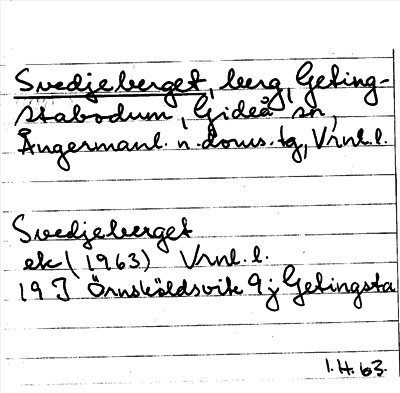 Svedjeberget, berg, Geting-
stabodum, Gideå sn,
Ångermanl. n. doms. tg, Vrnl. l.
Svedjeberget
ek (1963) Vrnl. l.
19 J Örnsköldsvik 9 j Getingsta
1.H.63.